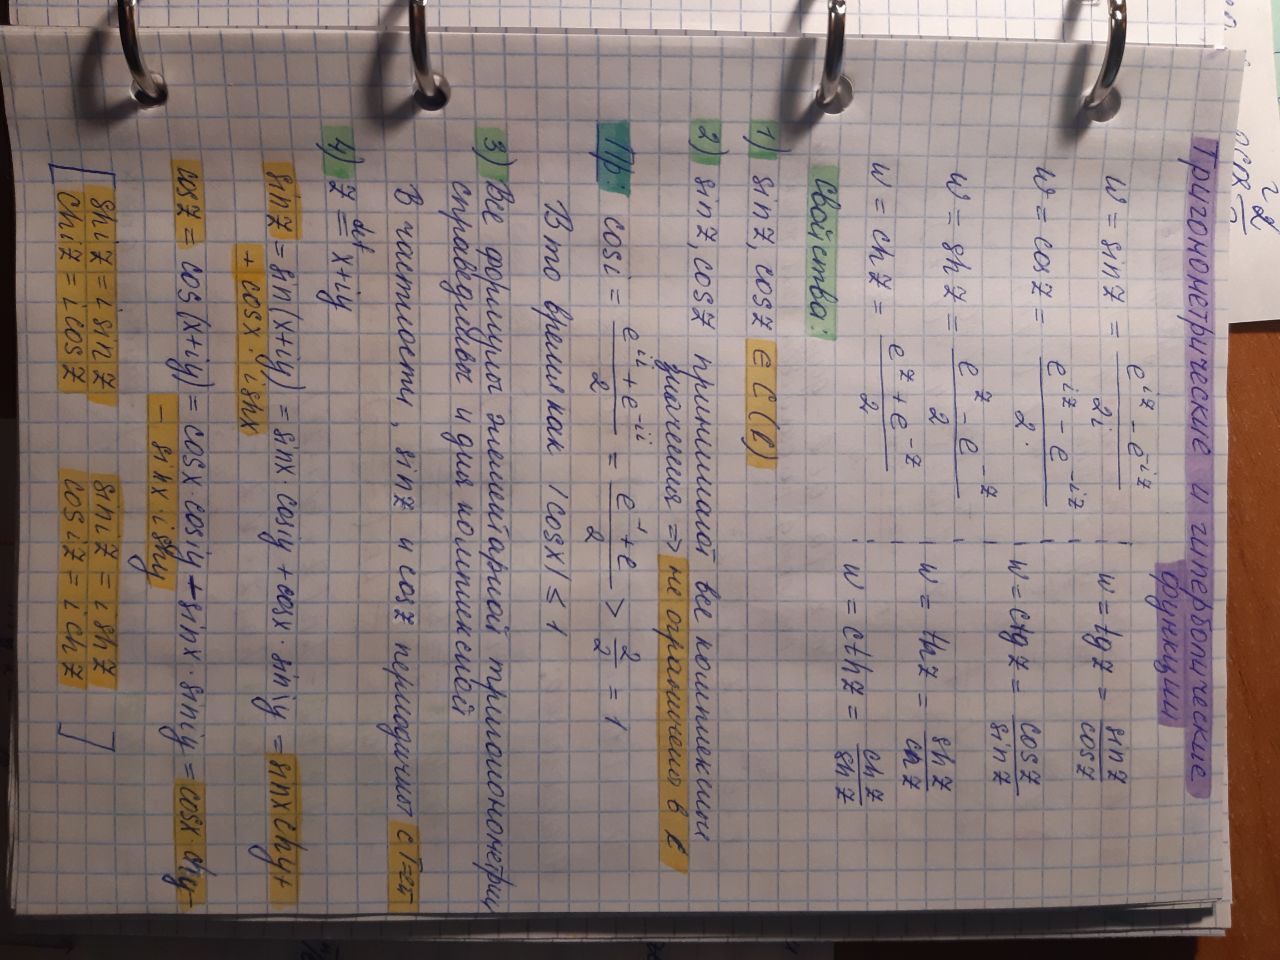 Тригонометрические и гиперболические
функции
w = sin z = (e^{iz} - e^{-iz})/2i
w = tg z = sin z/cos z
w = cos z = (e^{iz} - e^{-iz})/2
w = ctg z = cos z/sin z
w = sh z = (e^z - e^{-z})/2
w = th z = sh z/ch z
w = ch z = (e^z + e^{-z})/2
w = cth z = ch z/sh z
Свойства:
1) sin z, cos z ∈ C(ℂ)
2) sin z, cos z принимают все комплексные
значения => не ограничено в ℂ
Пр: cos i = (e^{ii} + e^{-ii})/2 = (e^{-1} + e)/2 > 2/2 = 1
В то время как |cos x| ≤ 1
3) Все формулы элементарной тригонометрии
справедливы и для комплексной
В частности, sin z и cos z периодичны с T=2π
4) z def= x+iy
sin z = sin(x+iy) = sin x · cos iy + cos x · sin iy = sin x ch y +
+ cos x · i sh x
cos z = cos(x+iy) = cos x · cos iy - sin x · sin iy = cos x · ch y -
- sin x · i sh y
[ sh iz = i sin z sin iz = i sh z
ch iz = i cos z cos iz = i ch z ]